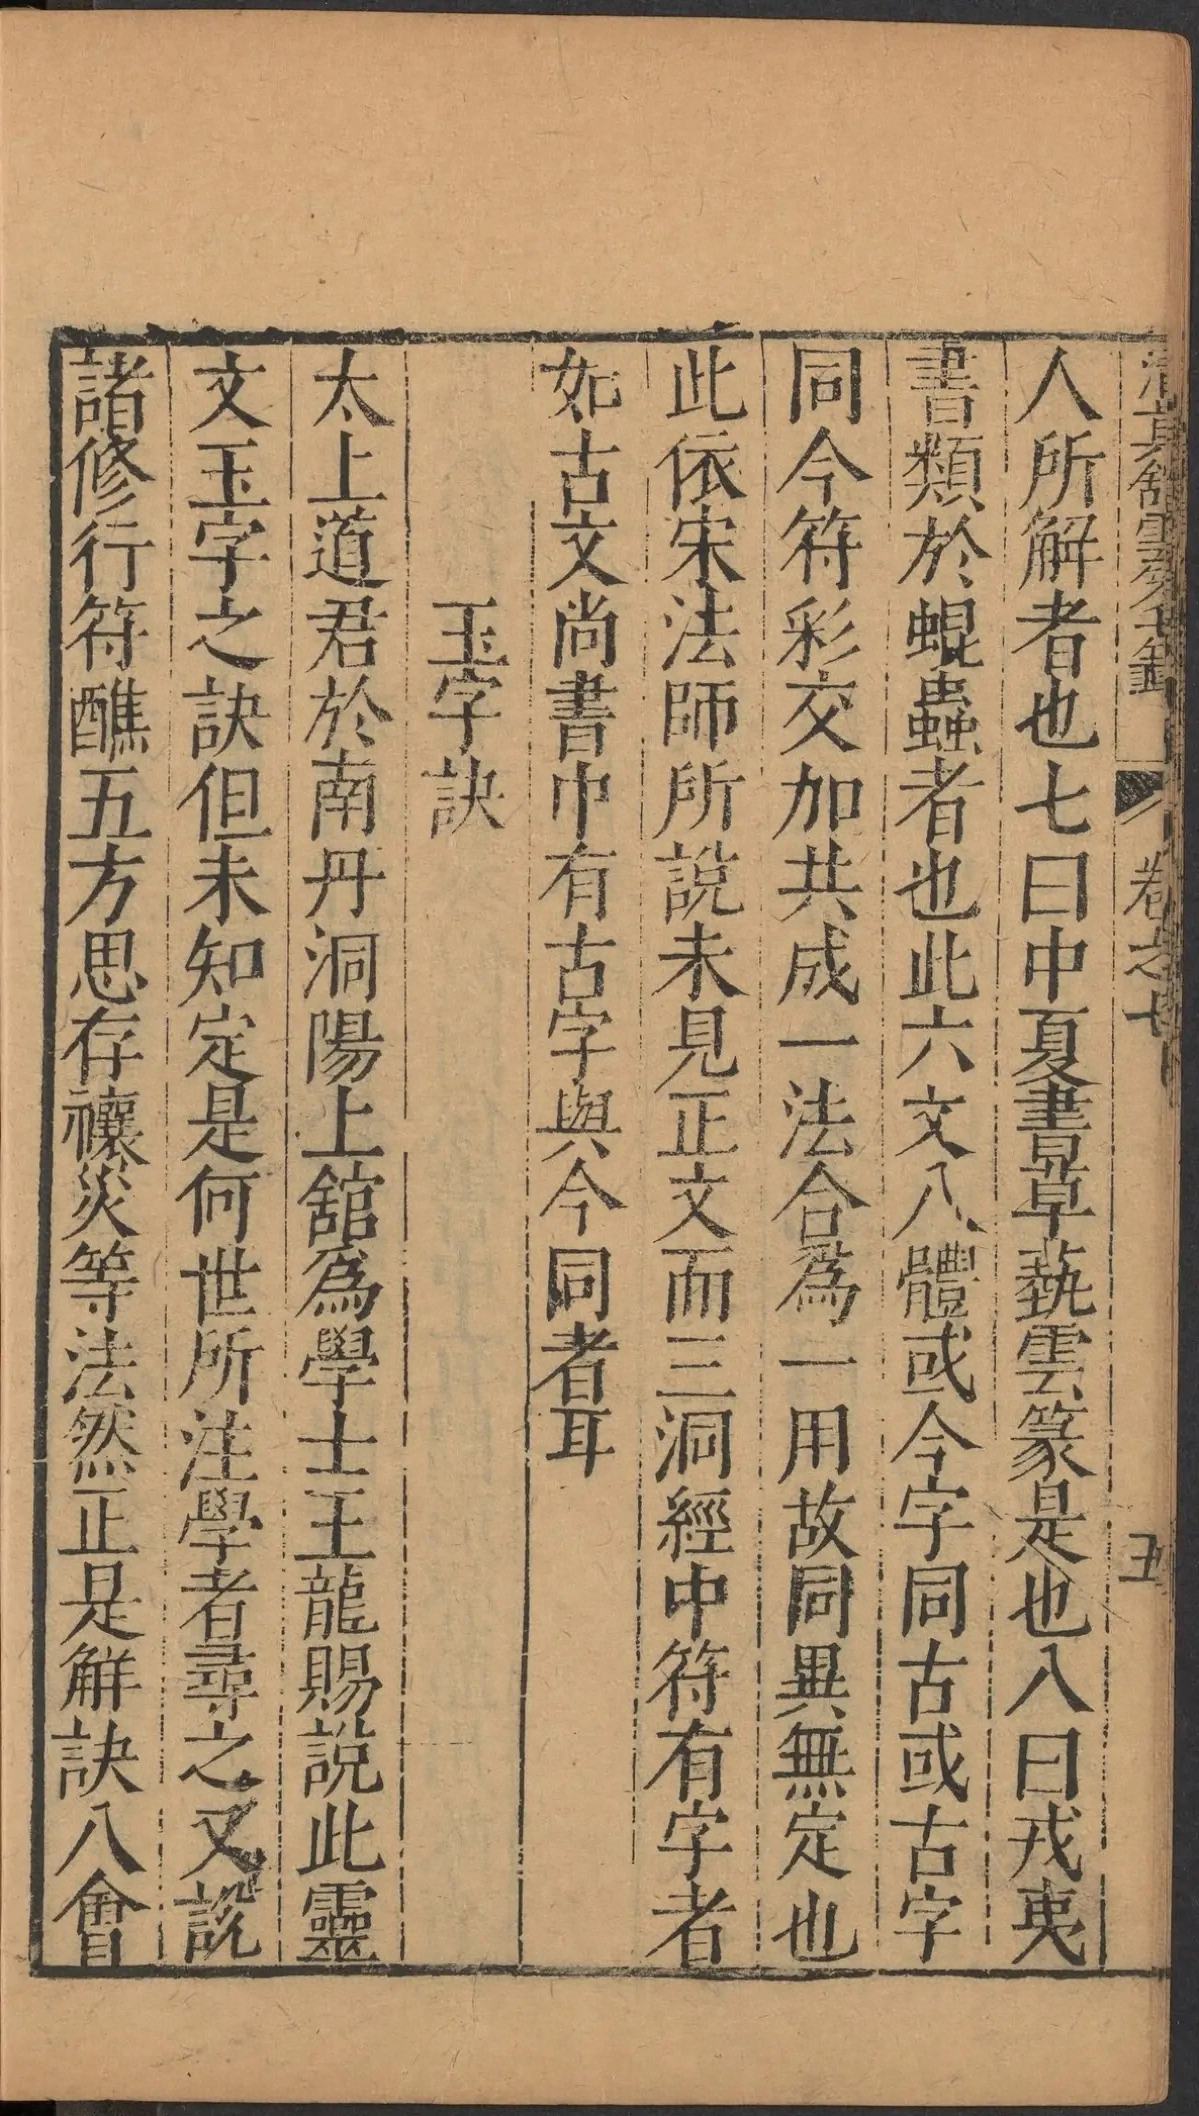 清真館雲笈七籤 卷之七 五
人所解者也七曰中夏書草藝雲篆是也八曰戎夷
書類於蜫蟲者也此六文八體或今字同古或古字
同今符彩交加共成一法合爲一用故同異無定也
此依宋法師所說未見正文而三洞經中符有字者
如古文尚書中有古字與今同者耳
玉字訣
太上道君於南丹洞陽上舘爲學士王龍賜說此靈
文玉字之訣但未知定是何世所注學者尋之又說
諸修行符醮五方思存禳災等法然正是解訣八會